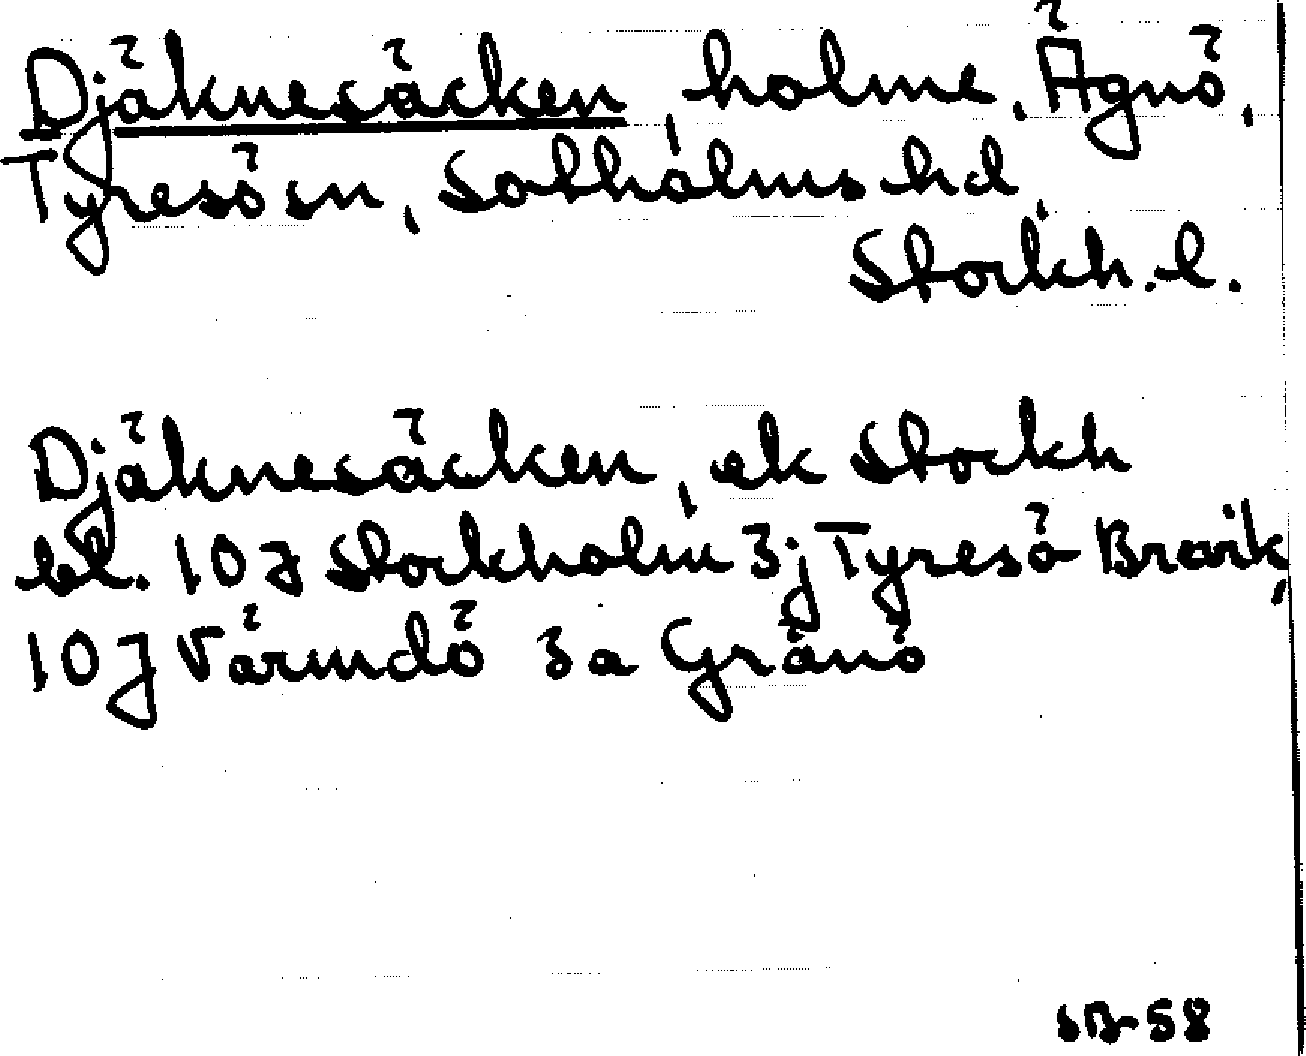 Djäknesäcken, holme, Ägnö,
Tyresö sn, Sotholms hd,
Stockh. l.
Djäknesäcken, ek Stockh
bl. 10J Stockholm 3j Tyresö-Brevik,
10J Värmdö 3a Gränö
SB-58